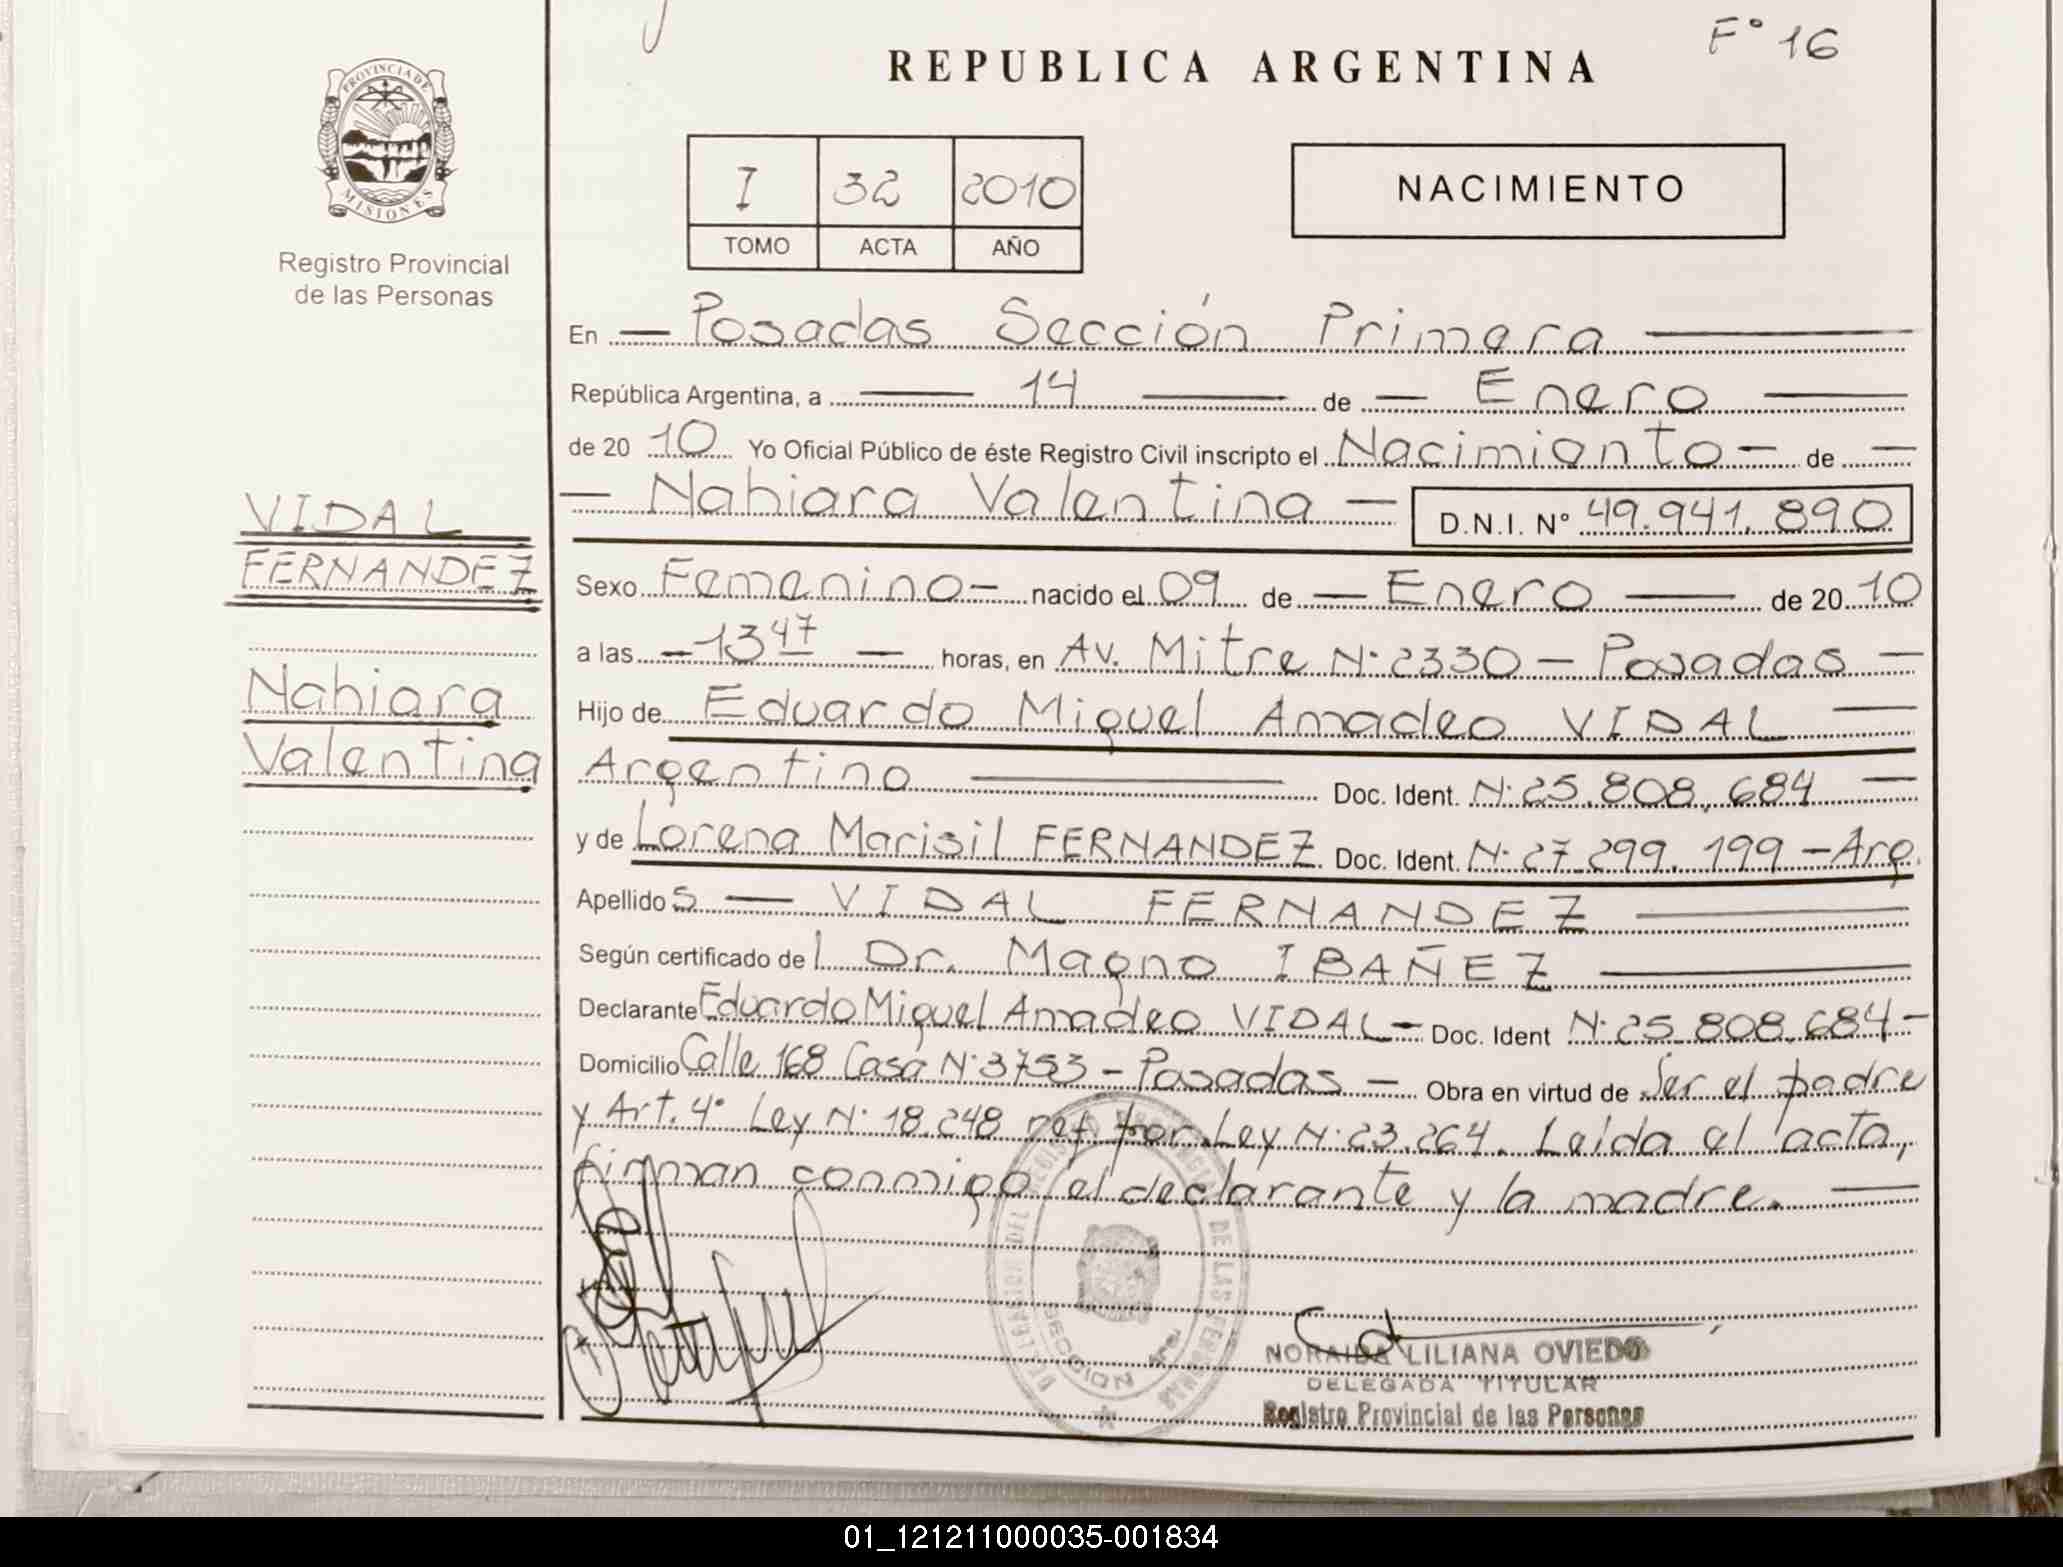 F° 16
REPUBLICA ARGENTINA
PROVINCIA DE
MISIONES
Registro Provincial
de las Personas
I 32 2010
TOMO ACTA AÑO
NACIMIENTO
En — Posadas Sección Primera —
República Argentina, a — 14 — de — Enero —
de 20 10 Yo Oficial Público de éste Registro Civil inscripto el Nacimiento — de —
— Nahiara Valentina — D.N.I. N° 49.941.890
VIDAL
FERNANDEZ
Nahiara
Valentina
Sexo Femenino — nacido el 09 de — Enero — de 20 10
a las — 13 47 — horas, en Av. Mitre N° 2330 — Posadas —
Hijo de Eduardo Miguel Amadeo VIDAL —
Argentino — Doc. Ident. N° 25.808.684 —
y de Lorena Marisil FERNANDEZ Doc. Ident. N° 27.299.199 — Arg.
Apellido s — VIDAL FERNANDEZ —
Según certificado de l Dr. Magno IBAÑEZ —
Declarante Eduardo Miguel Amadeo VIDAL — Doc. Ident N° 25.808.684 —
Domicilio Calle 168 Casa N° 3753 — Posadas — Obra en virtud de Ser el padre
y Art. 4° Ley N° 18.248 ref por Ley N° 23.264. Leida el acta,
firman conmigo el declarante y la madre. —
DELEGACION DEL REGISTRO PROVINCIAL DE LAS PERSONAS
SECCION 1ra.
NORAIDA LILIANA OVIEDO
DELEGADA TITULAR
Registro Provincial de las Personas
01_121211000035-001834